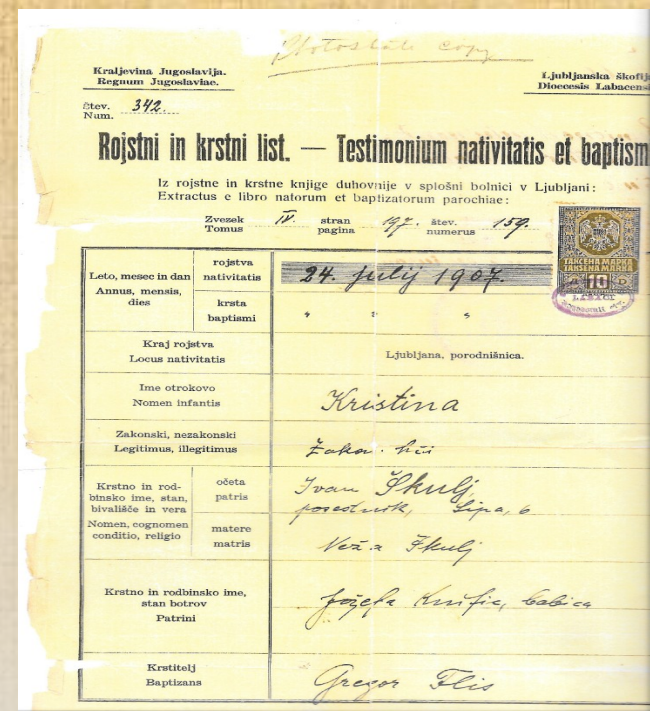 Photostatic copy
Kraljevina Jugoslavija.
Regnum Jugoslaviae.
Ljubljanska škofij
Dioecesis Labacens
štev.
Num. 342.
Rojstni in krstni list. — Testimonium nativitatis et baptism
Iz rojstne in krstne knjige duhovnije v splošni bolnici v Ljubljani:
Extractus e libro natorum et baptizatorum parochiae:
Zvezek IV. stran 197. štev. 159.
Tomus pagina numerus
ТАКСЕНА МАРКА
TAKSENA MARKA
10
Leto, mesec in dan
Annus, mensis,
dies
rojstva
nativitatis
24. julij 1907.
krsta
baptismi
" " "
Kraj rojstva
Locus nativitatis
Ljubljana, porodnišnica.
Ime otrokovo
Nomen infantis
Kristina
Zakonski, nezakonski
Legitimus, illegitimus
Zakon. hči
Krstno in rod-
binsko ime, stan,
bivališče in vera
Nomen, cognomen
conditio, religio
očeta
patris
Ivan Škulj,
posestnik, Lipa, 6
matere
matris
Neža Škulj
Krstno in rodbinsko ime,
stan botrov
Patrini
Jožefa babica
Krstitelj
Baptizans
Gregor Flis